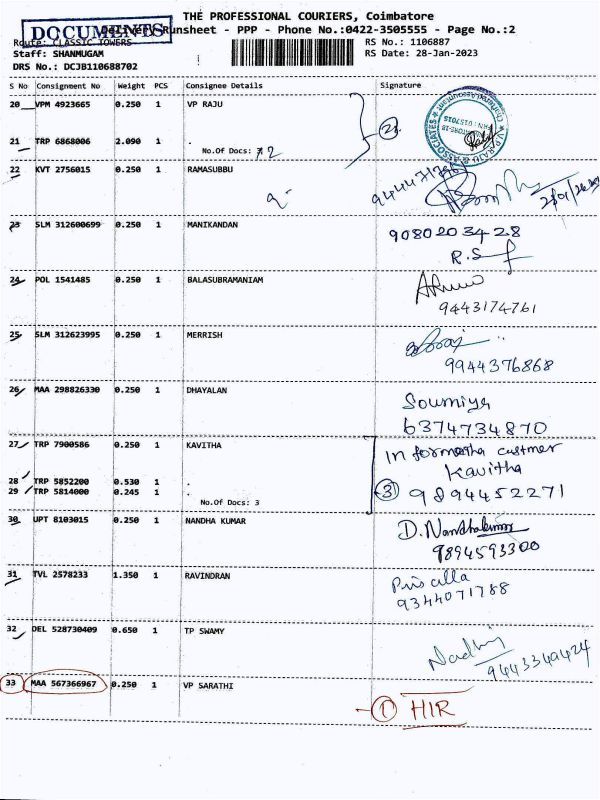 THE PROFESSIONAL COURIERS, Coimbatore
DOCUMENTS
Delivery Runsheet - PPP - Phone No.:0422-3505555 - Page No.:2
Route: CLASSIC TOWERS
RS No.: 1106887
Staff: SHANMUGAM
RS Date: 28-Jan-2023
DRS No.: DCJB110688702
S No Consignment No Weight PCS Consignee Details Signature
20 VPM 4923665 0.250 1 VP RAJU
V.P.RAJU & ASSOCIATES
Chartered Accountant
2
21 TRP 6868006 2.090 1 .
No.Of Docs: 2
22 KVT 2756015 0.250 1 RAMASUBBU
23 SLM 312600699 0.250 1 MANIKANDAN
9080203428
R.S
24 POL 1541485 0.250 1 BALASUBRAMANIAM
9443174761
25 SLM 312623995 0.250 1 MERRISH
9944376868
26 MAA 298826330 0.250 1 DHAYALAN
Soumiya
6374734870
27 TRP 7900586 0.250 1 KAVITHA
customer
Kavitha
28 TRP 5852200 0.530 1 .
29 TRP 5814000 0.245 1 .
3 9894452271
No.Of Docs: 3
30 UPT 8103015 0.250 1 NANDHA KUMAR
D. Nandhakumar
9894593300
31 TVL 2578233 1.350 1 RAVINDRAN
Priscilla
9344071788
32 DEL 528730409 0.650 1 TP SWAMY
9443349424
33 MAA 567366967 0.250 1 VP SARATHI
1 HIR